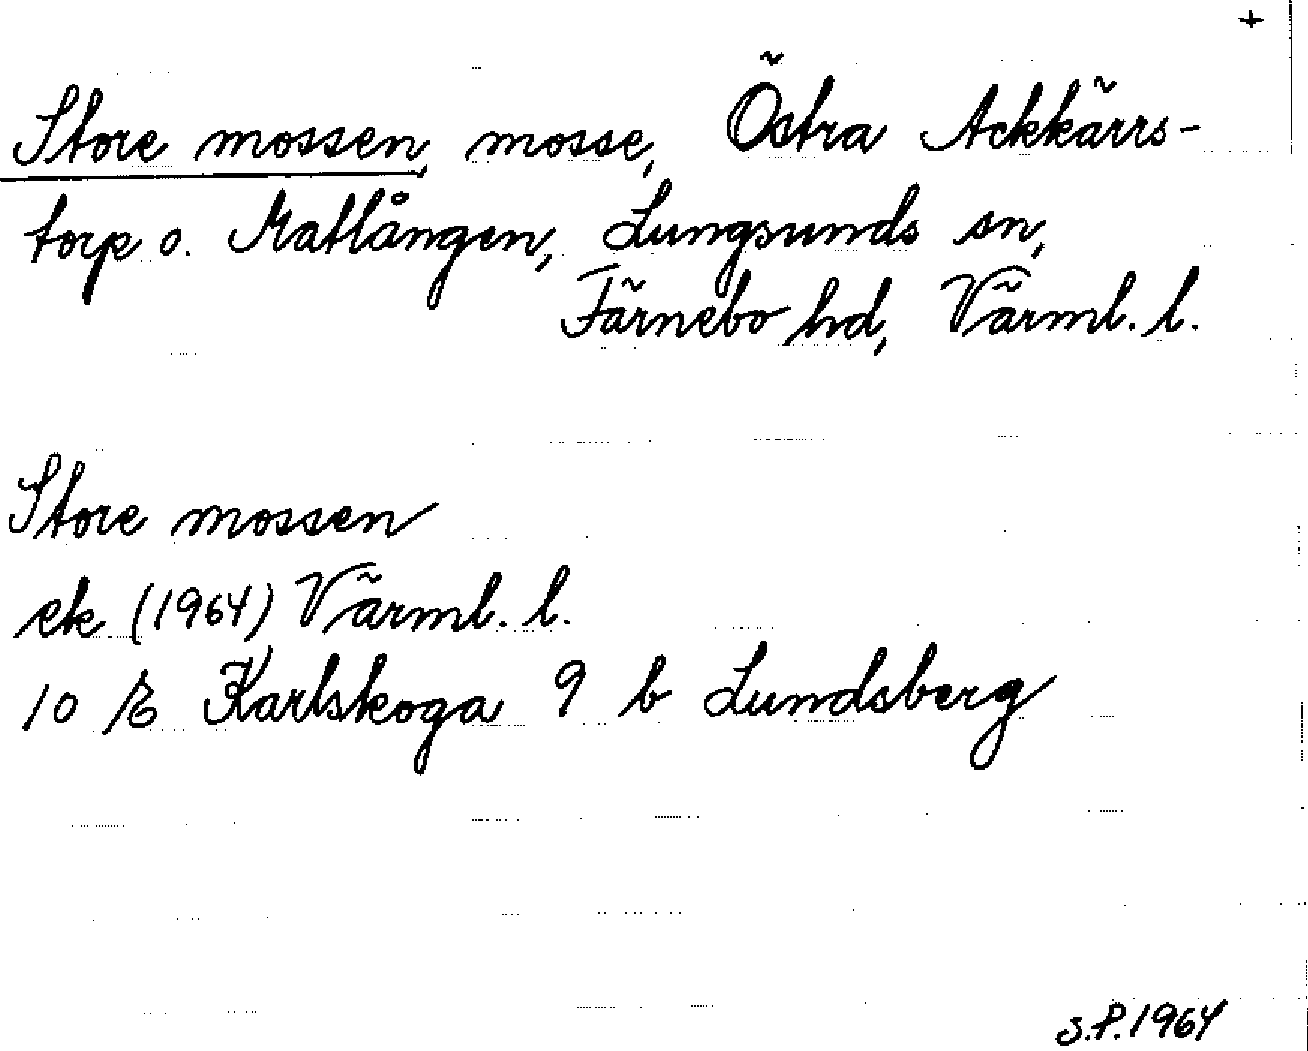 +
Store mossen, mosse, Östra Ackkärrs-
torp o. Matlången, Lungsunds sn,
Färnebo hd, Värml. l.
Store mossen
ek (1964) Värml. l.
10 E Karlskoga 9 b Lundsberg
S.P. 1964